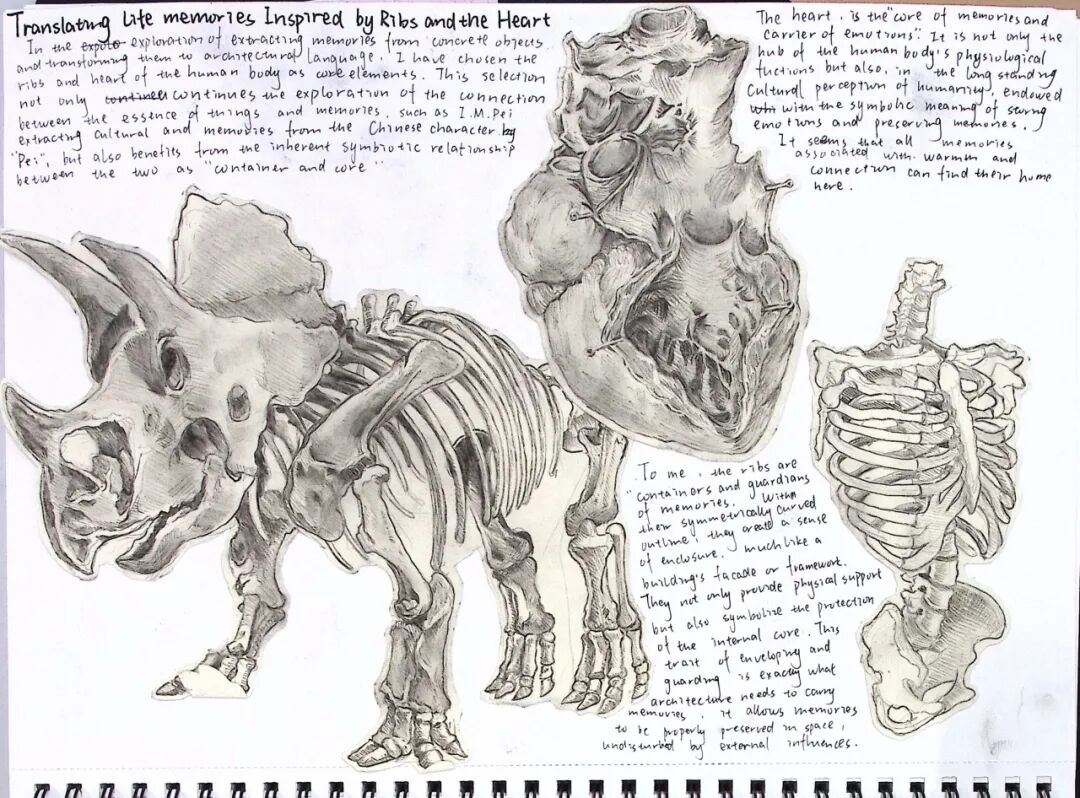 Translating Life memories Inspired by Ribs and the Heart
In the expolo exploration of extracting memories from concrete objects
and transforming them to architectural language, I have chosen the
ribs and heart of the human body as core elements. This selection
not only continues the exploration of the connection
between the essence of things and memories, such as I.M.Pei
extracting cultural and memories from the Chinese character by
"Pei", but also benefits from the inherent symbiotic relationship
between the two as "container and core"
The heart is the "core of memories and
carrier of emotions". It is not only the
hub of the human body's physiological
fuctions but also, in the long standing
Cultural perception of humanity, endowed
with the symbolic meaning of storing
emotions and preserving memories.
It seems that all memories
associated with warmm and
connection can find their home
here.
To me, the ribs are
"containers and guardians
of memories. With
their symmetrically curved
outline, they create a sense
of enclosure, much like a
building's facade or framework.
They not only provide physical support
but also symbolize the protection
of the internal core. This
trait of enveloping and
guarding is exactly what
architecture needs to carry
memories, it allows memories
to be properly preserved in space,
undisturbed by external influences.